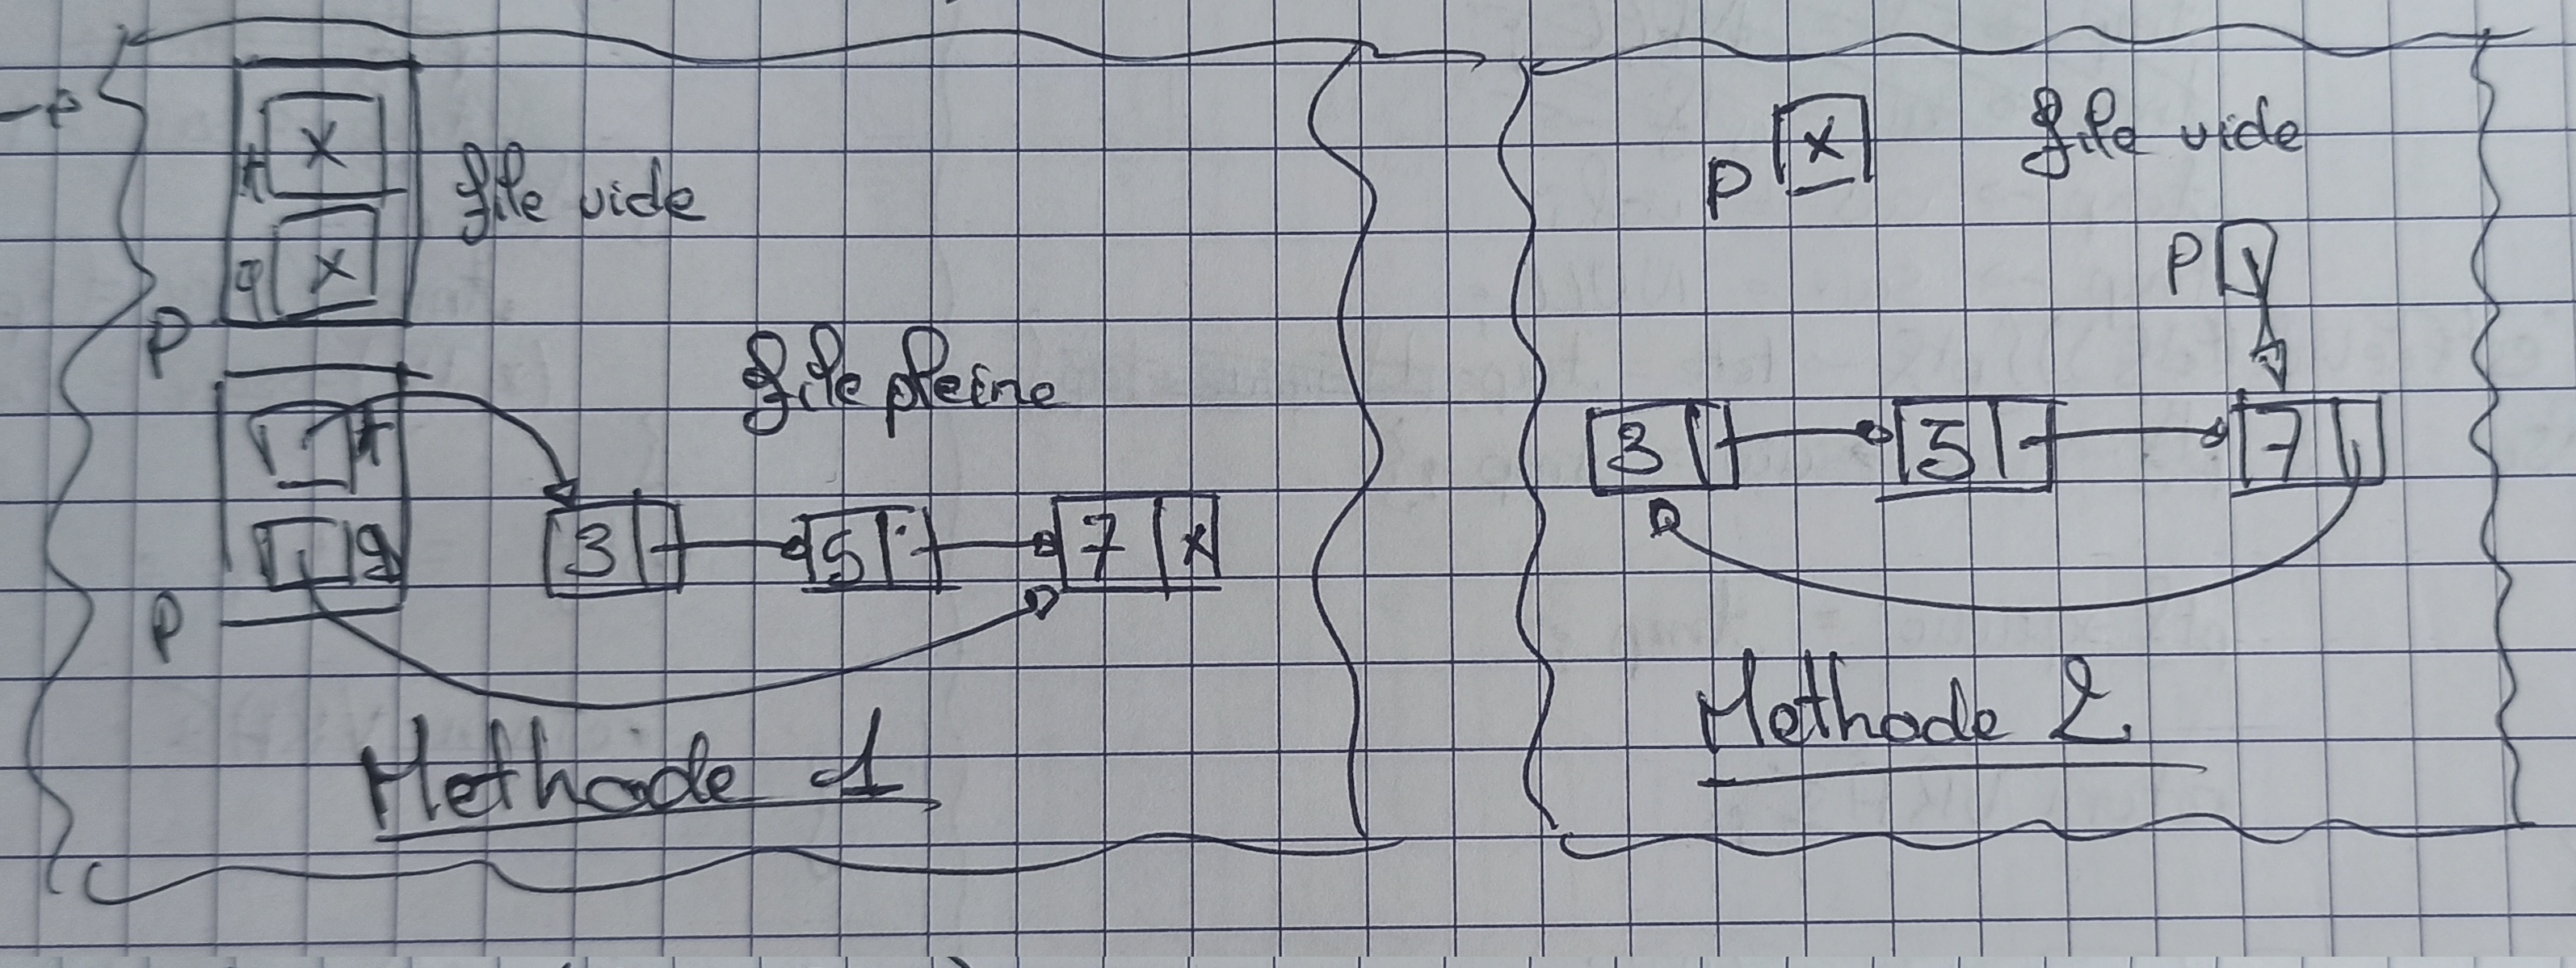 t X
q X
file vide
P
t
q
file pleine
3 5 7 X
P
Methode 1
P X
file vide
P
3 5 7
Methode 2